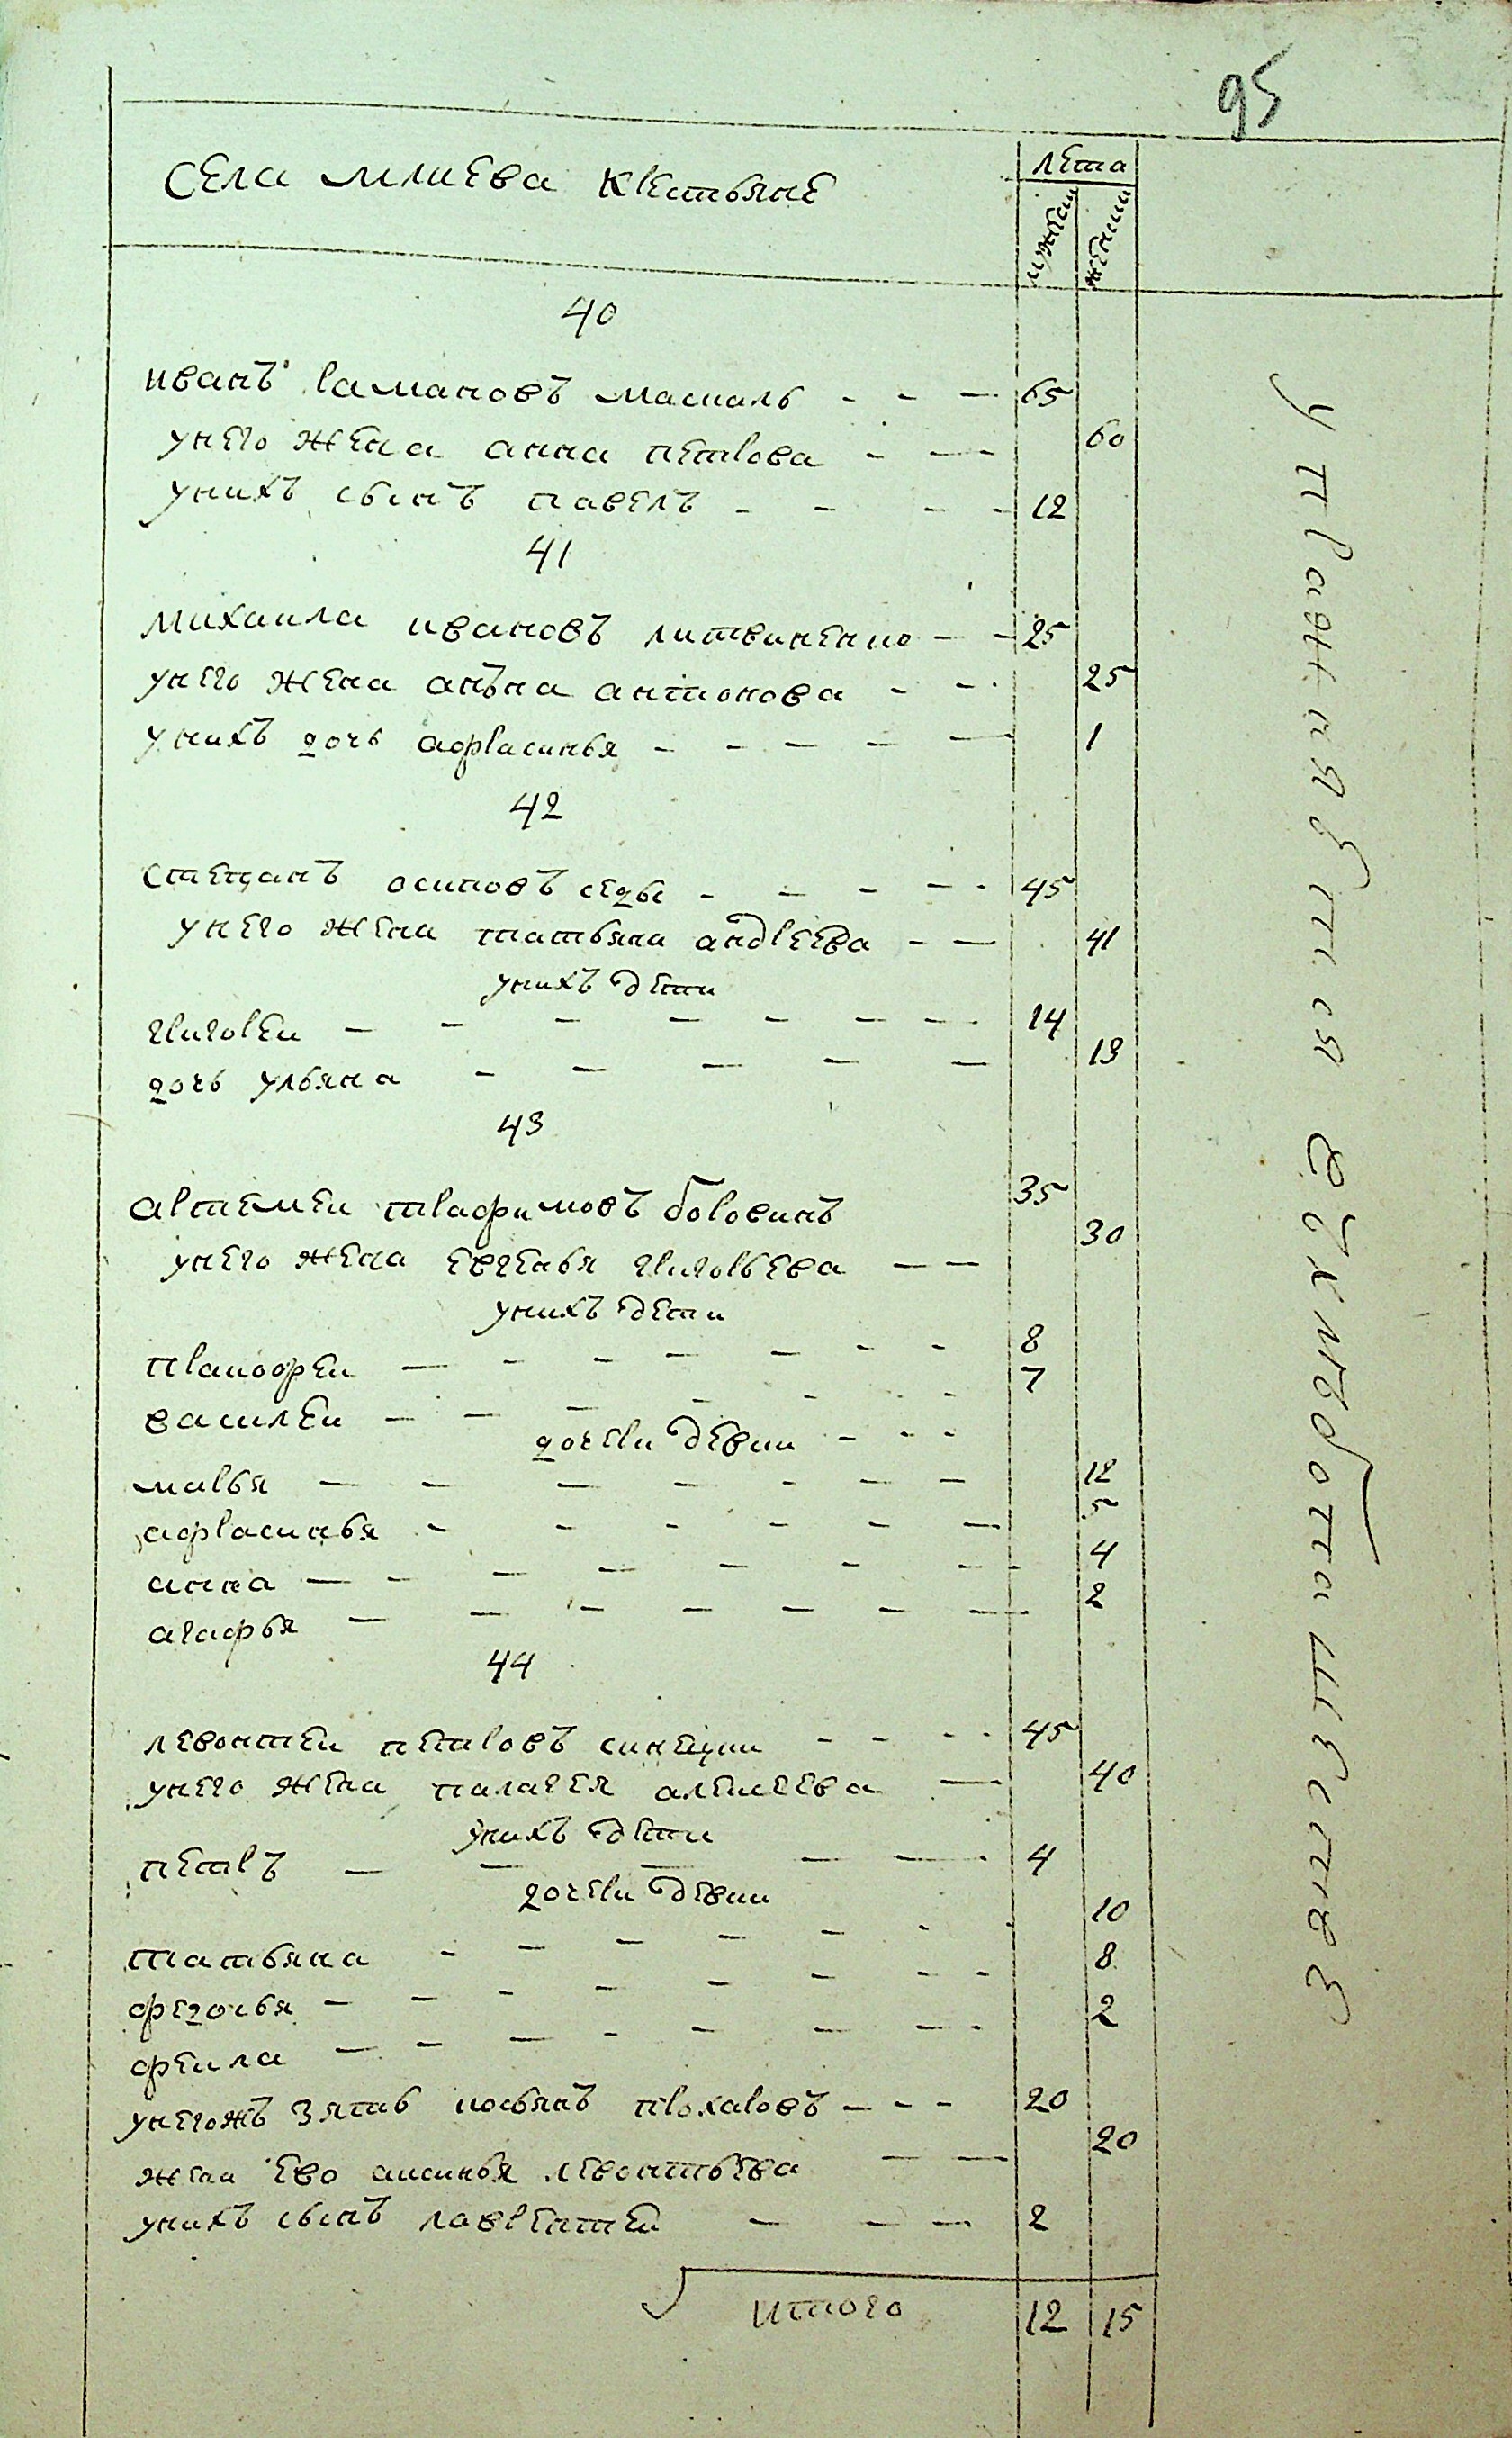 95
Села млиева крестьяне
лета
мужеска
женски
40
иванъ романовъ москаль 65
унего жена анна петрова 60
унихъ сынъ павелъ 12
41
михаила ивановъ литвиненко 25
унего жена анъна антонова 25
унихъ дочь афрасинья 1
42
стецанъ осиповъ седы 45
унего жена татьяна андреева 41
унихъ дети
григореи 14
дочь ульяна 13
43
артемеи трафимовъ боровикъ 35
унего жена евгенья григорьева 30
унихъ дети
пракофеи 8
василеи 7
дочери девки
марья 12
афрасинья 5
анна 4
агафья 2
44
левонтеи петровъ синецки 45
унего жена палагея алексеева 40
унихъ дети
петръ 4
дочери девки
татьяна 10
федосья 8
фекла 2
унегожъ зять касьянъ прохаровъ 20
жена ево аксинья левонтьева 20
унихъ сынъ лаврентеи 2
итого 12 15
упражняется